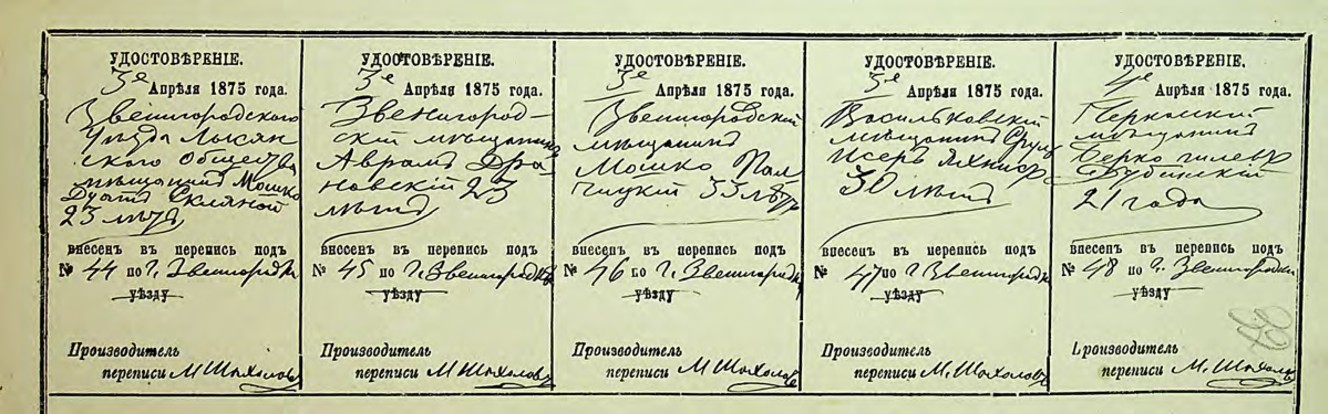 УДОСТОВѢРЕНІЕ.
3е Апрѣля 1875 года.
Звенигородскаго
уѣзда Лысян
скаго Общества
мѣщанинъ Мошко
Скляной
23 лѣтъ
внесенъ въ перепись подъ
№ 44 по г. Звенигородкѣ
уѣзду
Производитель
переписи М Шохоловъ
УДОСТОВѢРЕНІЕ.
3е Апрѣля 1875 года.
Звенигород-
скій мѣщанинъ
Аврамъ Дра
новскій 23
лѣтъ
внесенъ въ перепись подъ
№ 45 по г. Звенигородкѣ
уѣзду
Производитель
переписи М Шохоловъ
УДОСТОВѢРЕНІЕ.
3е Апрѣля 1875 года.
Звенигородскій
мѣщанинъ
Мошко Пал
чицкій 33 лѣтъ
внесенъ въ перепись подъ
№ 46 по г. Звенигородкѣ
уѣзду
Производитель
переписи М Шохоловъ
УДОСТОВѢРЕНІЕ.
3е Апрѣля 1875 года.
Васильковскій
мѣщанинъ Сруль
Исеръ
30 лѣтъ
внесенъ въ перепись подъ
№ 47 по г Звенигородкѣ
уѣзду
Производитель
переписи М. Шохоловъ
УДОСТОВѢРЕНІЕ.
4е Апрѣля 1875 года.
Черкаскій
мѣщанинъ
Берко Гилевъ
Дубинскій
21 года
внесенъ въ перепись подъ
№ 48 по г. Звенигородкѣ
уѣзду
Производитель
переписи М. Шохоловъ